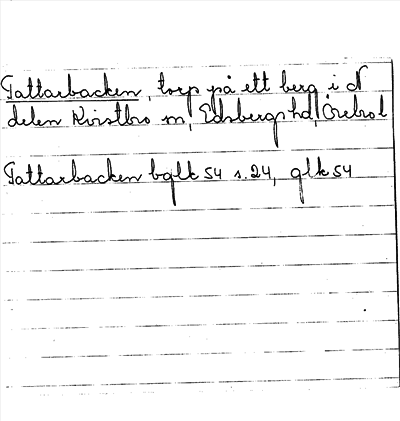 Tattarbacken, torp på ett berg i N
delen Kvistbro sn, Edsbergs hd, Örebro l
Tattarbacken bglk 54 s. 24, glk 54